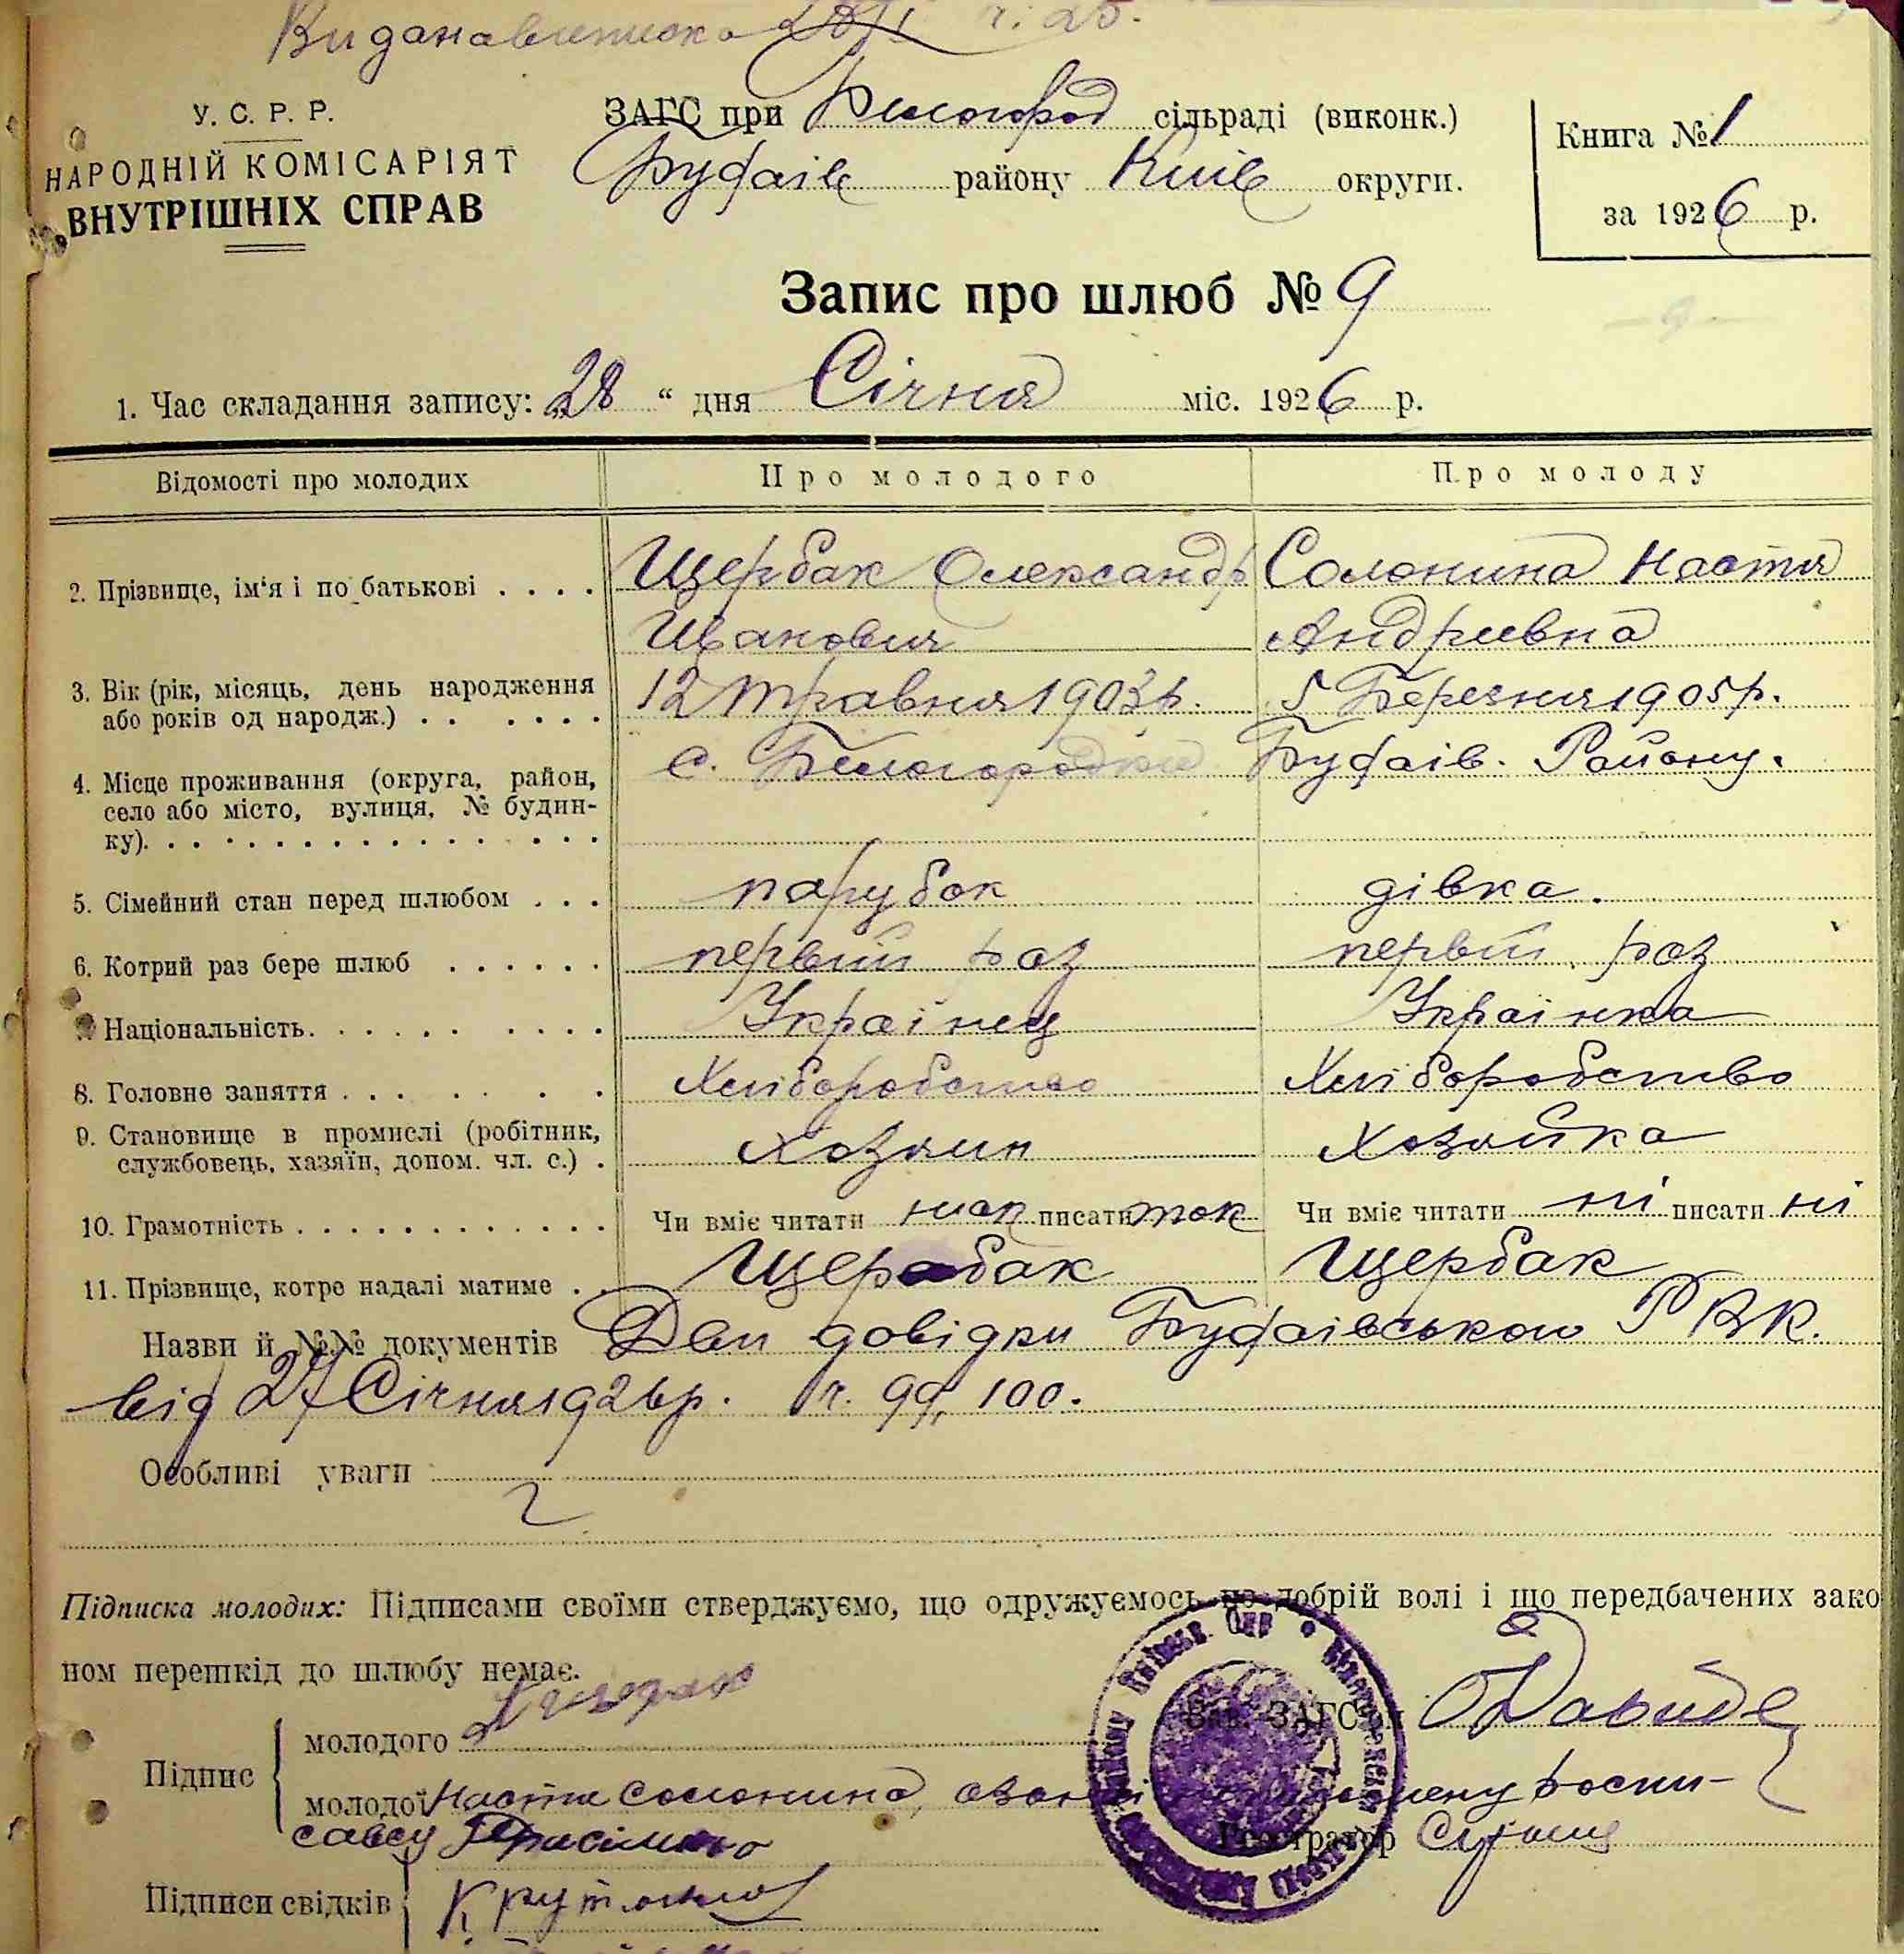 Видана виписка
У. С. Р. Р.
НАРОДНІЙ КОМІСАРІЯТ
ВНУТРІШНІХ СПРАВ
ЗАГС при Білогород сільраді (виконк.)
Будаів району Київ округи.
Книга № 1
за 1926 р.
Запис про шлюб № 9
— 9 —
1. Час складання запису: 28 “ дня Січня міс. 1926 р.
Відомості про молодих Про молодого Про молоду
2. Прізвище, ім‘я і по батькові . . . . Щербак Олександр Солонина Настя
Иванович Андриевна
3. Вік (рік, місяць, день народження 12 травня 1903 р. 5 Березня 1905 р.
або років од народж.) . . . . . .
4. Місце проживання (округа, район, с. Білогородки Будаів. Району.
село або місто, вулиця, № будин-
ку). . . . . . . . . . . . . . . .
5. Сімейний стан перед шлюбом . . . парубок дівка.
6. Котрий раз бере шлюб . . . . . . первий раз первій раз
Національність. . . . . . . . . . Українец Українка
8. Головне заняття . . . . . . . Хліборобство Хліборобство
9. Становище в промислі (робітник, Хозяин Хозяйка
службовець, хазяїн, допом. чл. с.) .
10. Грамотність . . . . . . . . . . . . Чи вміє читати писати так Чи вміє читати ні писати ні
11. Прізвище, котре надалі матиме . . Щербак Щербак
Назви й №№ документів Дані довідки Будаівською РВК.
від 27 Січня 1926 р. ч. 99, 100.
Особливі уваги
Підписка молодих: Підписами своїми стверджуємо, що одружуємось по добрій волі і що передбачених зако
ном перешкід до шлюбу немає.
Підпис молодого
Зав. ЗАГС'ом
молодої Настя Солонина, а за роспи-
Реєстратор
Підписи свідків